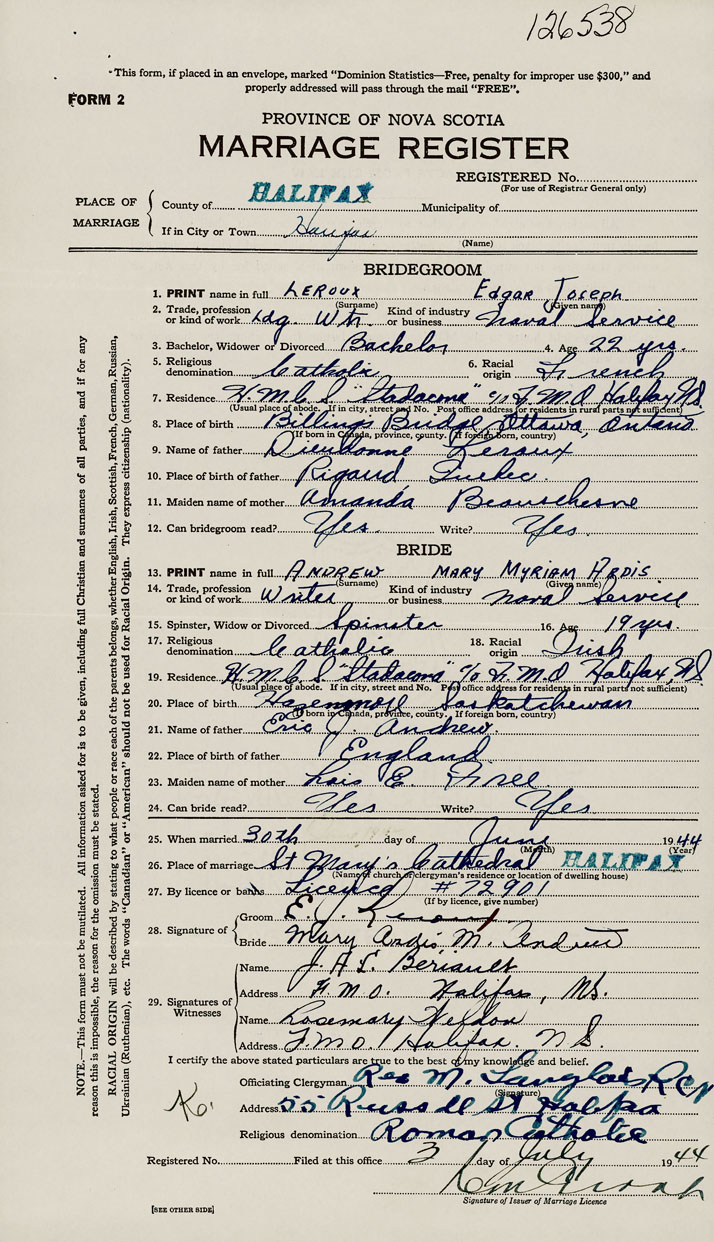 126538
This form, if placed in an envelope, marked "Dominion Statistics—Free, penalty for improper use $300," and
properly addressed will pass through the mail "FREE".
FORM 2
PROVINCE OF NOVA SCOTIA
MARRIAGE REGISTER
REGISTERED No.
(For use of Registrar General only)
PLACE OF MARRIAGE
County of HALIFAX Municipality of
If in City or Town Halifax
(Name)
BRIDEGROOM
1. PRINT name in full LEROUX Edgar Joseph
(Surname) (Given name)
2. Trade, profession or kind of work Ldg. Wtr. Kind of industry or business Naval Service
3. Bachelor, Widower or Divorced Bachelor 4. Age 22 yrs.
5. Religious denomination Catholic 6. Racial origin French
7. Residence H.M.C.S "Stadacona" c/o F.M.O Halifax N.S.
(Usual place of abode. If in city, street and No. Post office address for residents in rural parts not sufficient)
8. Place of birth Billings Bridge, Ottawa, Ontario
(If born in Canada, province, county. If foreign born, country)
9. Name of father Dieudonne Leroux
10. Place of birth of father Rigaud Quebec.
11. Maiden name of mother Amanda Beauschesne
12. Can bridegroom read? Yes. Write? Yes.
BRIDE
13. PRINT name in full ANDREW MARY MYRIAM ARDIS
(Surname) (Given name)
14. Trade, profession or kind of work Writer Kind of industry or business Naval Service
15. Spinster, Widow or Divorced Spinster 16. Age 19 yrs.
17. Religious denomination Catholic 18. Racial origin Irish
19. Residence H.M.C.S "Stadacona" c/o F.M.O Halifax, N.S.
(Usual place of abode. If in city, street and No. Post office address for residents in rural parts not sufficient)
20. Place of birth Saskatchewan
(If born in Canada, province, county. If foreign born, country)
21. Name of father Eric J. Andrew.
22. Place of birth of father England
23. Maiden name of mother Lois E. Free
24. Can bride read? Yes Write? Yes.
25. When married 30th day of June 1944
(Month) (Year)
26. Place of marriage St Mary's Cathedral HALIFAX
(Name of church or clergyman's residence or location of dwelling house)
27. By licence or banns Licence # 72901
(If by licence, give number)
28. Signature of
Groom E. J. Leroux
Bride Mary Ardis M. Andrew
29. Signatures of Witnesses
Name J. H. L. Beriault
Address F.M.O. Halifax, N.S.
Name Rosemary
Address F.M.O. Halifax. N S.
I certify the above stated particulars are true to the best of my knowledge and belief.
Officiating Clergyman Rev M. Langlois RCN
(Signature)
Address 55 Russell St Halifax
Religious denomination Roman Catholic
Registered No. Filed at this office 3 day of July 1944
Signature of Issuer of Marriage Licence
[SEE OTHER SIDE]
NOTE.—This form must not be mutilated. All information asked for is to be given, including full Christian and surnames of all parties, and if for any
reason this is impossible, the reason for the omission must be stated.
RACIAL ORIGIN will be described by stating to what people or race each of the parents belongs, whether English, Irish, Scottish, French, German, Russian,
Ukrainian (Ruthenian), etc. The words "Canadian" or "American" should not be used for Racial Origin. They express citizenship (nationality).